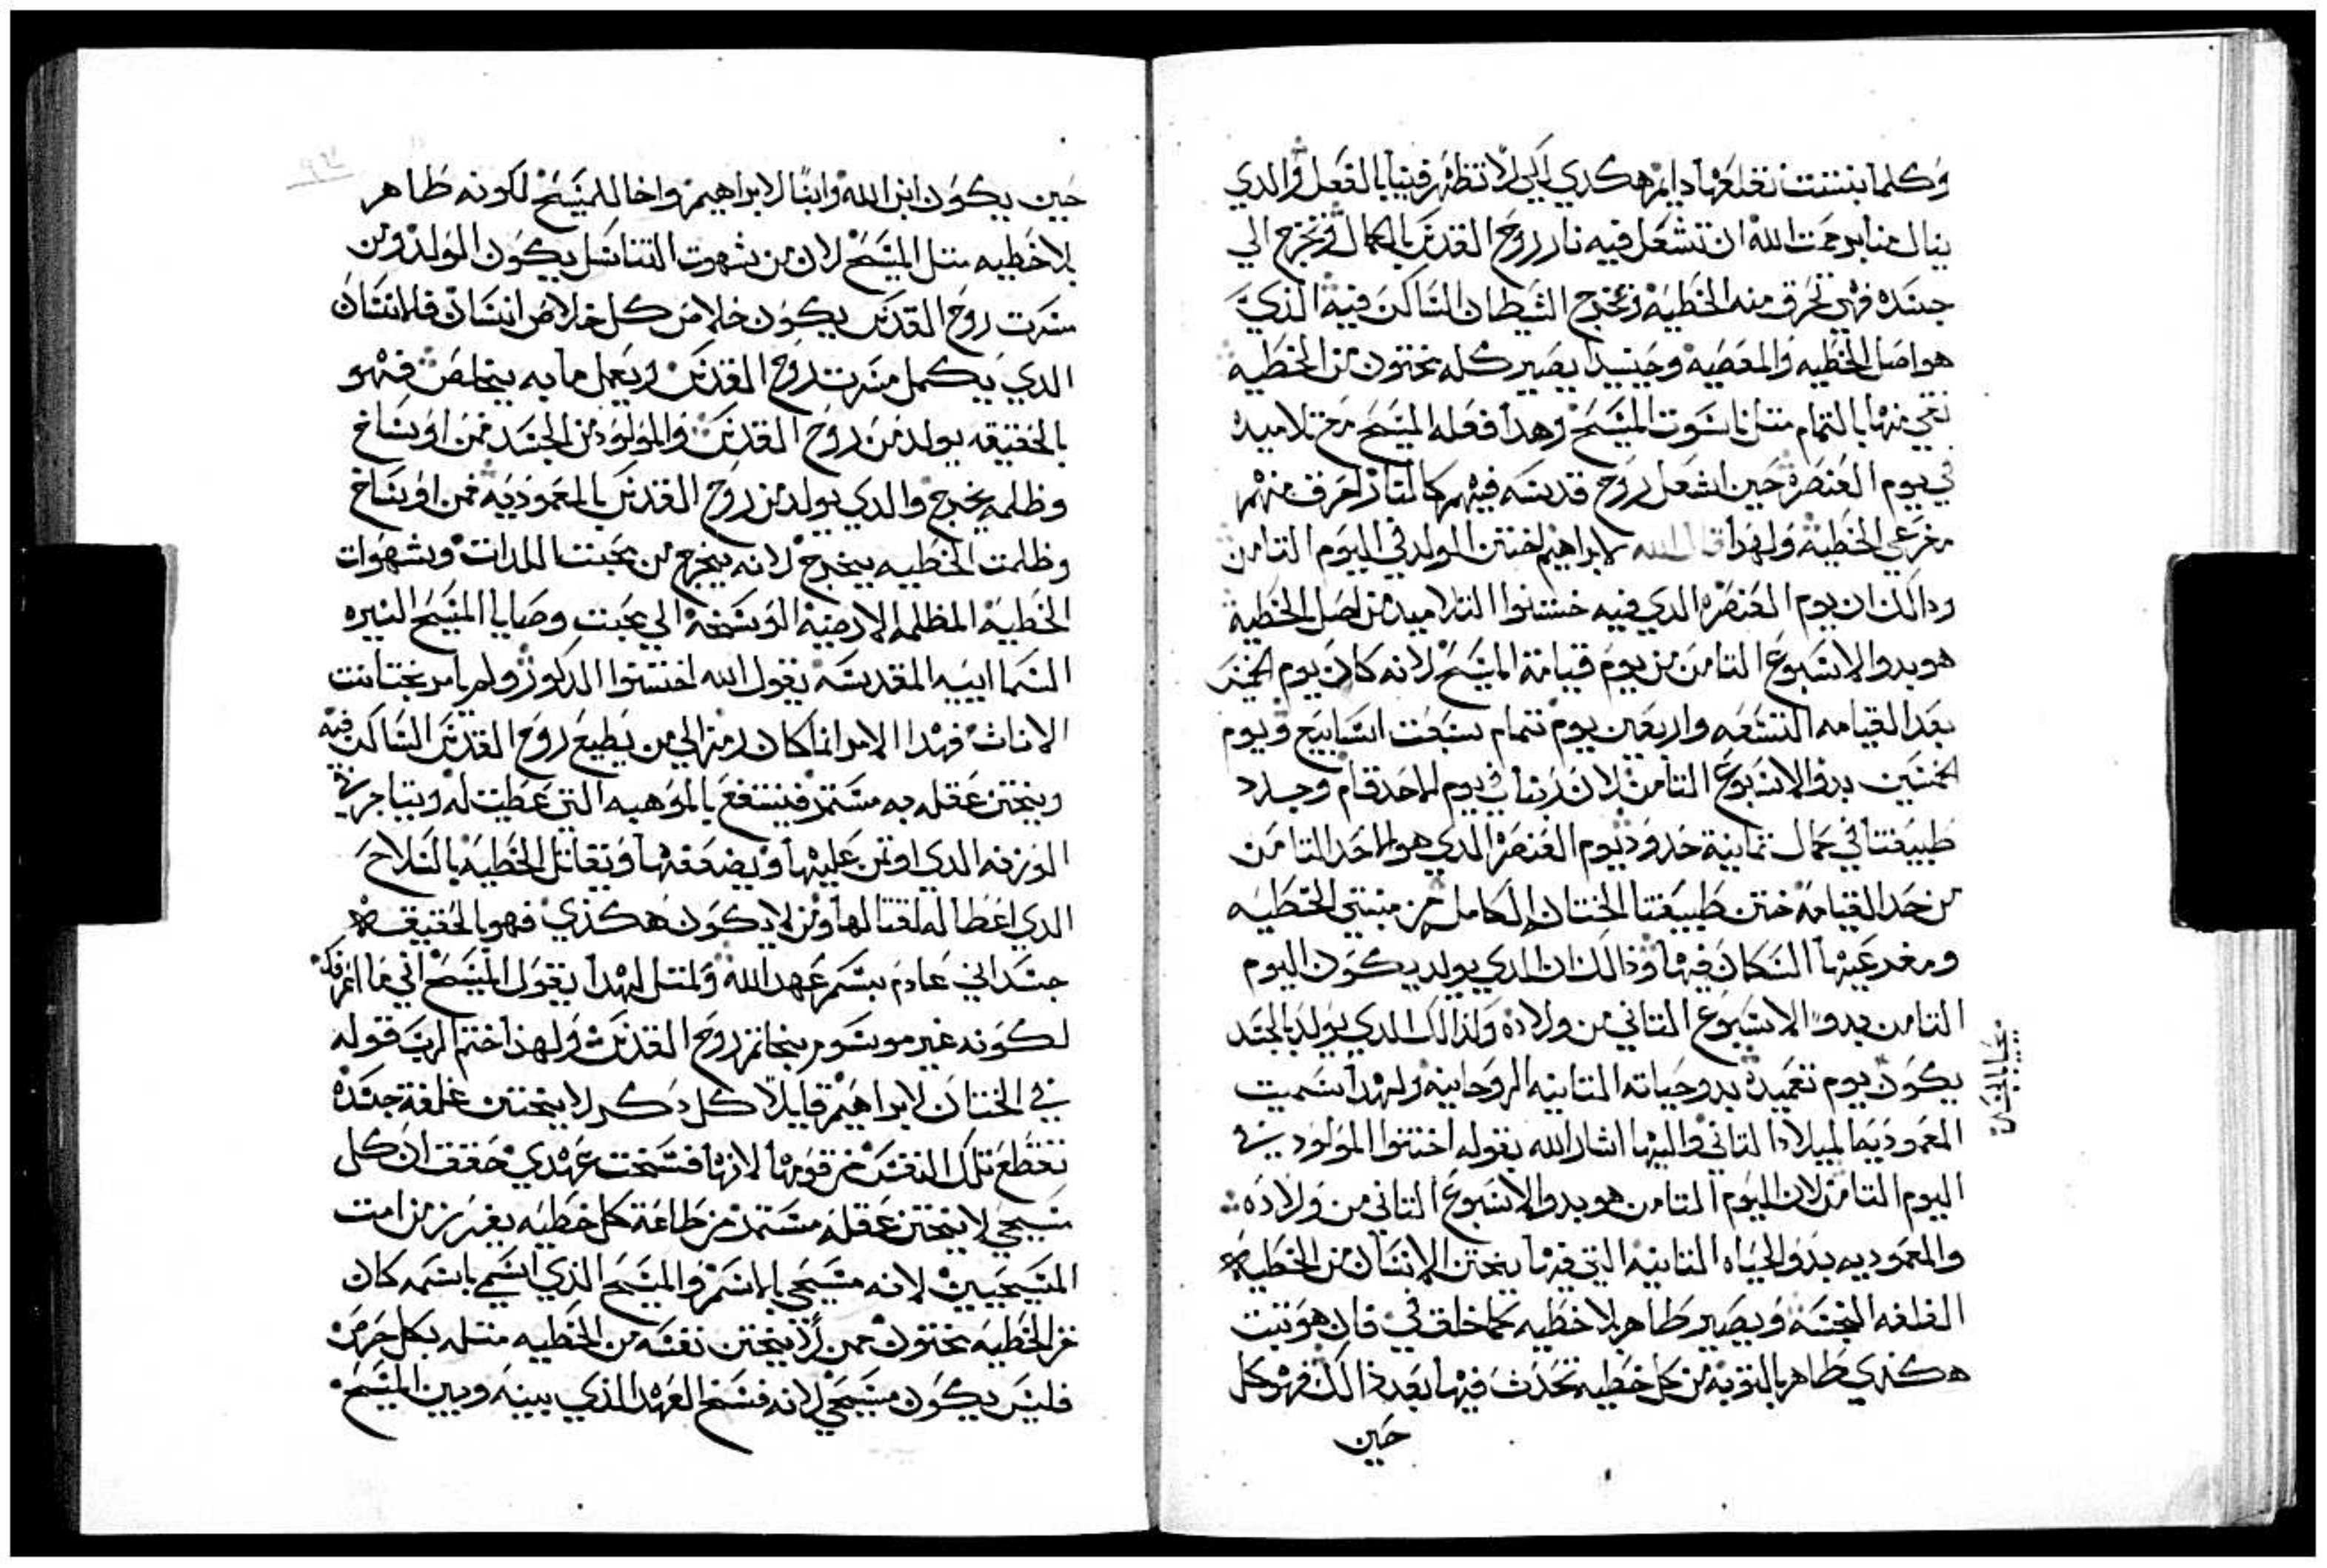 وكلما بنتت نقلعها دايم هكدي لكي لا تظهر فينا بالفعل والدي
ينال منا برحمت الله ان تشعل فيه نار روح القدس بالكمال وتخرج الي
جسده فهي تحرق منه الخطيه وتخرج الشيطان الساكن فيه الذي
هو اصل الخطيه والمعصيه وحينيدا يصير كله مختون من الخطيه
نقي منها بالتمام متل ناسوت المسيح وهدا فعله المسيح مع تلاميده
في يوم العنصره حين اشعل روح قدسه فيهم كالنار لحرق منهم
الخطيه ولهدا قال الله لابراهيم اختن المولد في اليوم التامن
ودالك ان يوم العنصره الدي فيه ختنوا التلاميد من اصل الخطيه
هو بدو الاسبوع التامن من يوم قيامة المسيح لانه كان يوم الخمسين
بعد القيامه التسعه واربعين يوم تمام سبعت اسابيع ويوم
الخمسين بدو الاسبوع التامن لان ربنا في يوم الاحد قام وجدد
طبيعتنا في كمال تمانية حدود يوم العنصره الدي هو الاحد التامن
من حد القيامه ختن طبيعتنا الختان الكامل من منبتي الخطيه
ومفرعيها السكان فيها وذالك ان الدي يولد يكون اليوم
التامن بدو الاسبوع التاني من ولاده ولذالك الدي يولد بالجسد
يكون يوم تعميده بدو حياته التانيه الروحانيه ولهدا سميت
المعموديه الميلاد التاني واليها اشار الله بقوله اختنوا المولود في
اليوم التامن لان اليوم التامن هو بدو الاسبوع التاني من ولاده
والمعموديه بدو الحياه التانيه التي فيها يختن الانسان من الخطيه
الغلفه النجسه ويصير طاهر بلا خطيه كما خلق في فان هو تبت
هكذي طاهر بالتوبه من كل خطيه تحدث فيها بعد ذالك فهو كل
حين
حين يكون ابن الله وابنا لابراهيم واخا للمسيح لكونه طاهر
بلا خطيه متل المسيح لان من شهوت التناسل يكون المولد ومن
مسرت روح القدس يكون خلاص كل خلاص انسان فالانسان
الدي يكمل مسرت روح القدس ويعمل ما به يتخلص فهو
بالحقيقه يولد من روح القدس والمولود من الجسد فمن اوساخ
وظلمه يخرج والدي يولد من روح القدس بالمعموديه فمن اوساخ
وظلمت الخطيه يخرج لانه يخرج من محبت اللدات وشهوات
الخطيه المظلمه الارضيه الوسخه الي محبت وصايا المسيح النيره
السماييه المقدسه يقول الله اختنوا الدكور ولم يامر بختانت
الاناث فهدا الامر انما كان رمز الي من يطيع روح القدس الساكن فيه
ويختن عقله به مستمر فينتفع بالموهبه التي عطيت له ويتاجر في
الوزنه الدي اوتمن عليها ويضعفها ويقاتل الخطيه بالسلاح
الدي اعطا له لقتالها ومن لا يكون هكذي فهو بالحقيقه
جسداني عادم بسم عهد الله ولمتل لهدا يقول المسيح اني ما اعرفك
لكونه غير موسوم بخاتم روح القدس ولهذا ختم الرب قوله
في الختان لابراهيم قايلا كل دكر لا يختتن غلفة جسده
تقطع تلك النفس من قومها لانها فسخت عهدي حقق ان كل
مسيحي لا يختن عقله مستمر من طاعة كل خطيه يفرز من امت
المسيحيين لانه مسيحي بالاسم والمسيح الذي اتسمي باسمه كان
عن الخطيه مختون فمن لا يختن نفسه من الخطيه متله بكل حرص
فليس يكون مسيحي لانه فسخ العهد الذي بينه وبين المسيح